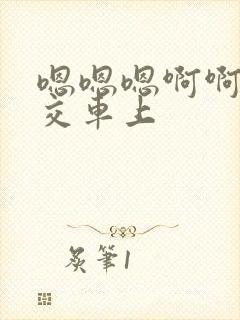 嗯嗯嗯啊啊
交车上
炙筆1